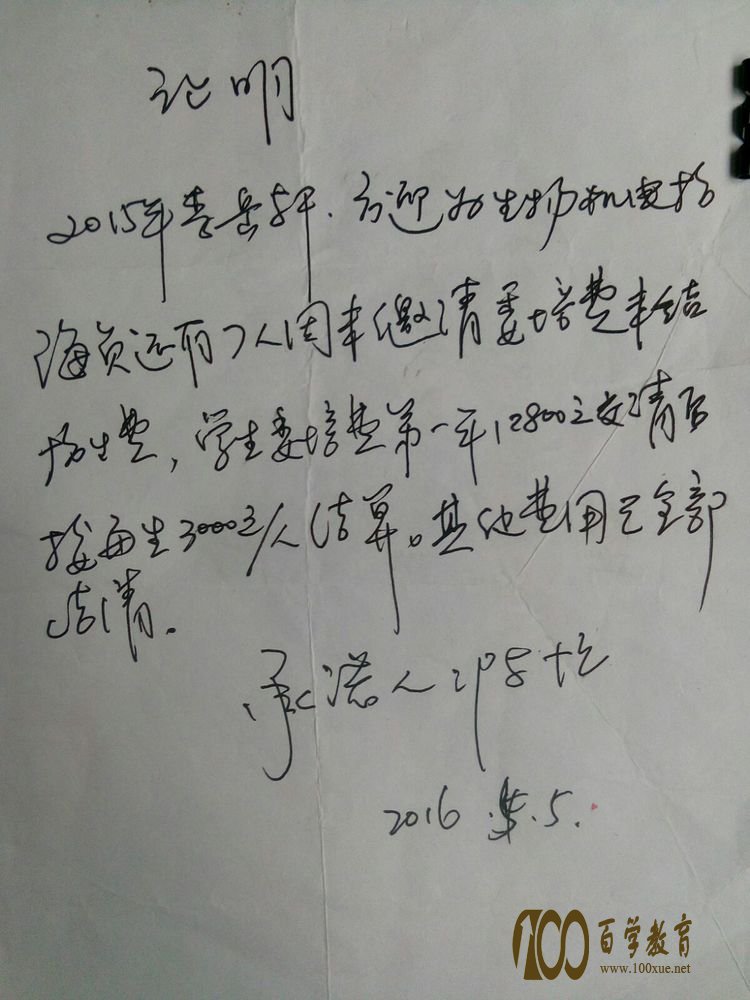 证明
2015年李岳轩、方迎为生物机电招
海员还有7人因未缴清委培费未结
招生费，学生委培费第一年12800元交清后
按每生3000元/人结算。其他费用已全部
结清。
承诺人
2016.5.5.
100百学教育
www.100xue.net